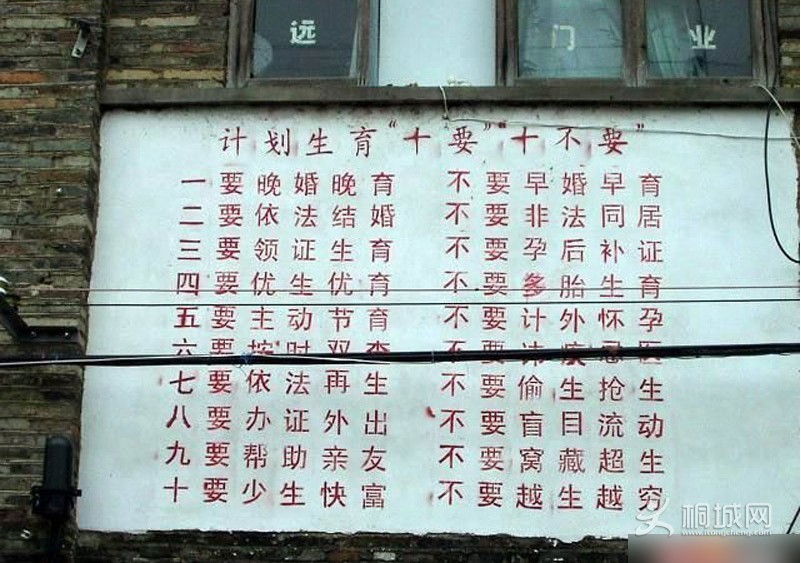 远 门 业
计划生育“十要”“十不要”
一要晚婚晚育 不要早婚早育
二要依法结婚 不要非法同居
三要领证生育 不要孕后补证
四要优生优育 不要多胎生育
五要主动节育 不要计外怀孕
六要按时双查 不要讳疾忌医
七要依法再生 不要偷生抢生
八要办证外出 不要盲目流动
九要帮助亲友 不要窝藏超生
十要少生快富 不要越生越穷
桐城网
www.itongcheng.com